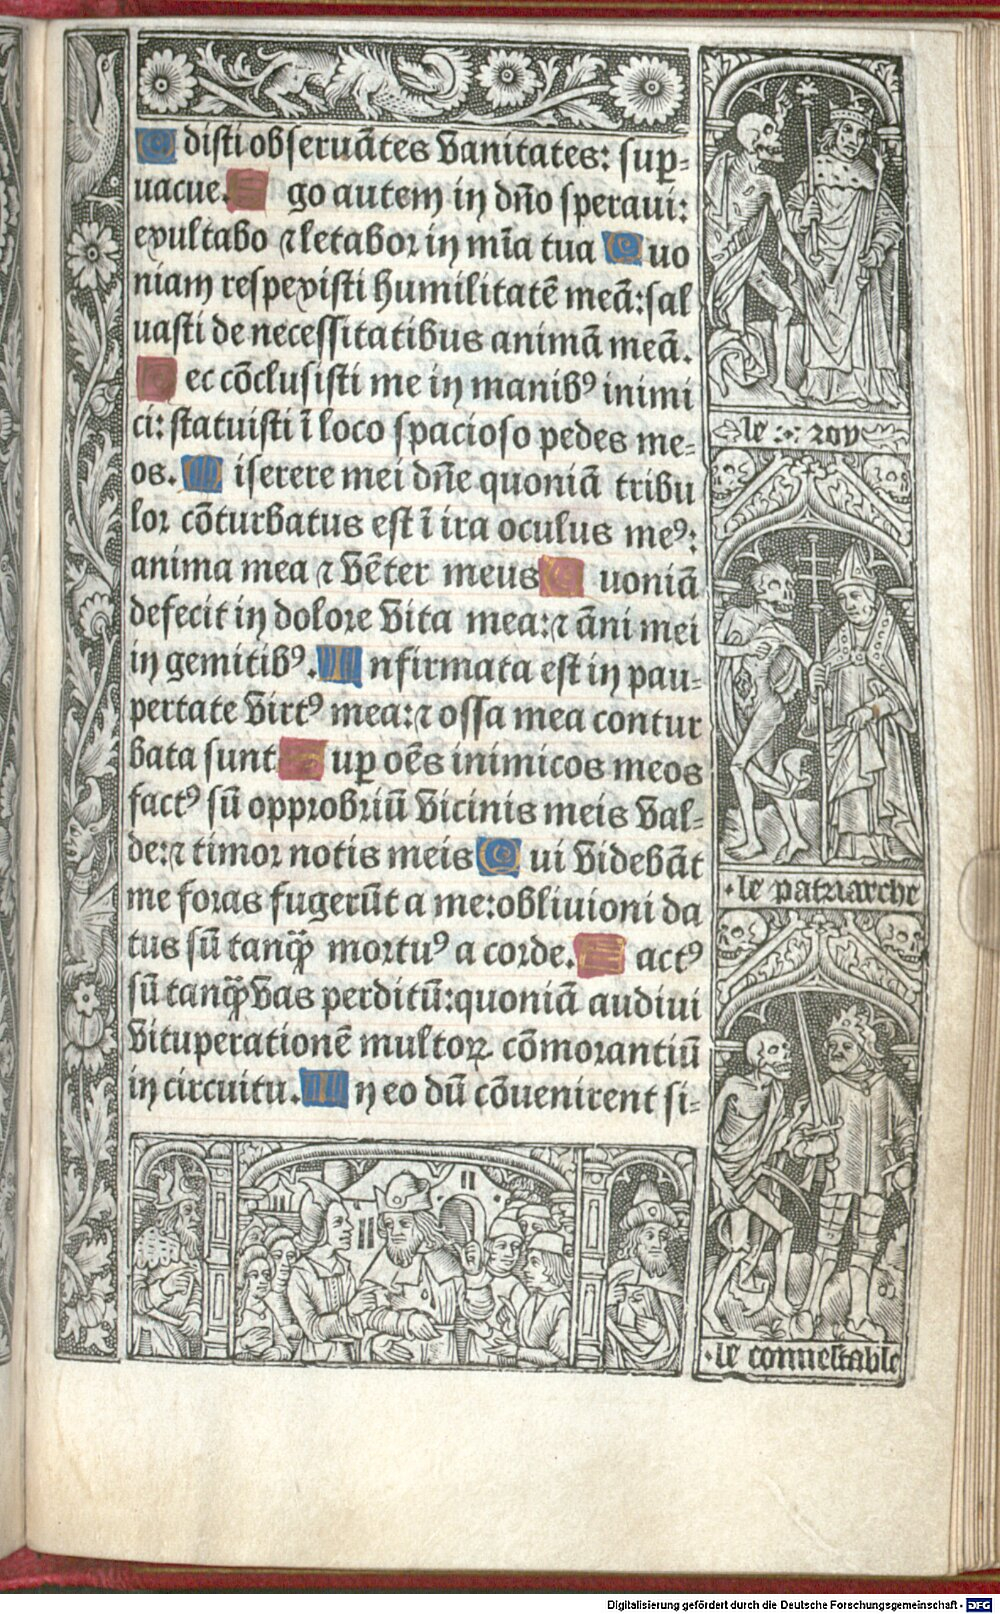 O disti obseruãtes vanitates: sup̱-
uacue. E go autem in dño speraui:
exultabo ⁊ letabor in mĩa tua Q uo
niam respexisti humilitatẽ meã: sal
uasti de necessitatibus animã meã.
N ec cõclusisti me in manibꝰ inimi
ci: statuisti ĩ loco spacioso pedes me-
os. M iserere mei dñe quoniã tribu
lor cõturbatus est ĩ ira oculus meꝰ:
anima mea ⁊ vẽter meus Q uoniã
defecit in dolore vita mea: ⁊ ãni mei
in gemitibꝰ. I nfirmata est in pau-
pertate virtꝰ mea: ⁊ ossa mea contur
bata sunt S up̱ oẽs inimicos meos
factꝰ sũ opprobriũ vicinis meis val-
de: ⁊ timor notis meis Q ui videbãt
me foras fugerũt a me: obliuioni da
tus sũ tanq̃ mortuꝰ a corde. F actꝰ
sũ tanq̃ vas perditũ: quoniã audiui
vituperationẽ multoꝝ cõmorantiũ
in circuitu. I n eo dũ cõuenirent si-
le roy
le patriarche
le connestable
Digitalisierung gefördert durch die Deutsche Forschungsgemeinschaft - DFG